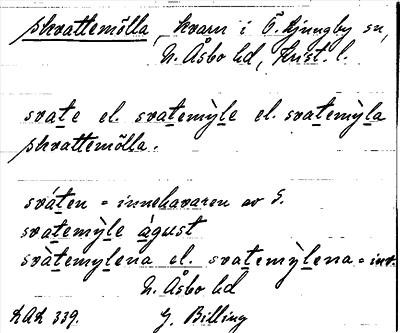 skvattemölla, kvarn i Ö. Ljungby sn,
N. Åsbo hd, Krist. l.
svate el. svatemỳle el. svatemỳla
skvattemölla.
sváten = innehavaren av G.
svatemỳle àgust
svàtemylena el. svatemỳlena = inv.
N. Åsbo hd
LAL 339. G. Billing